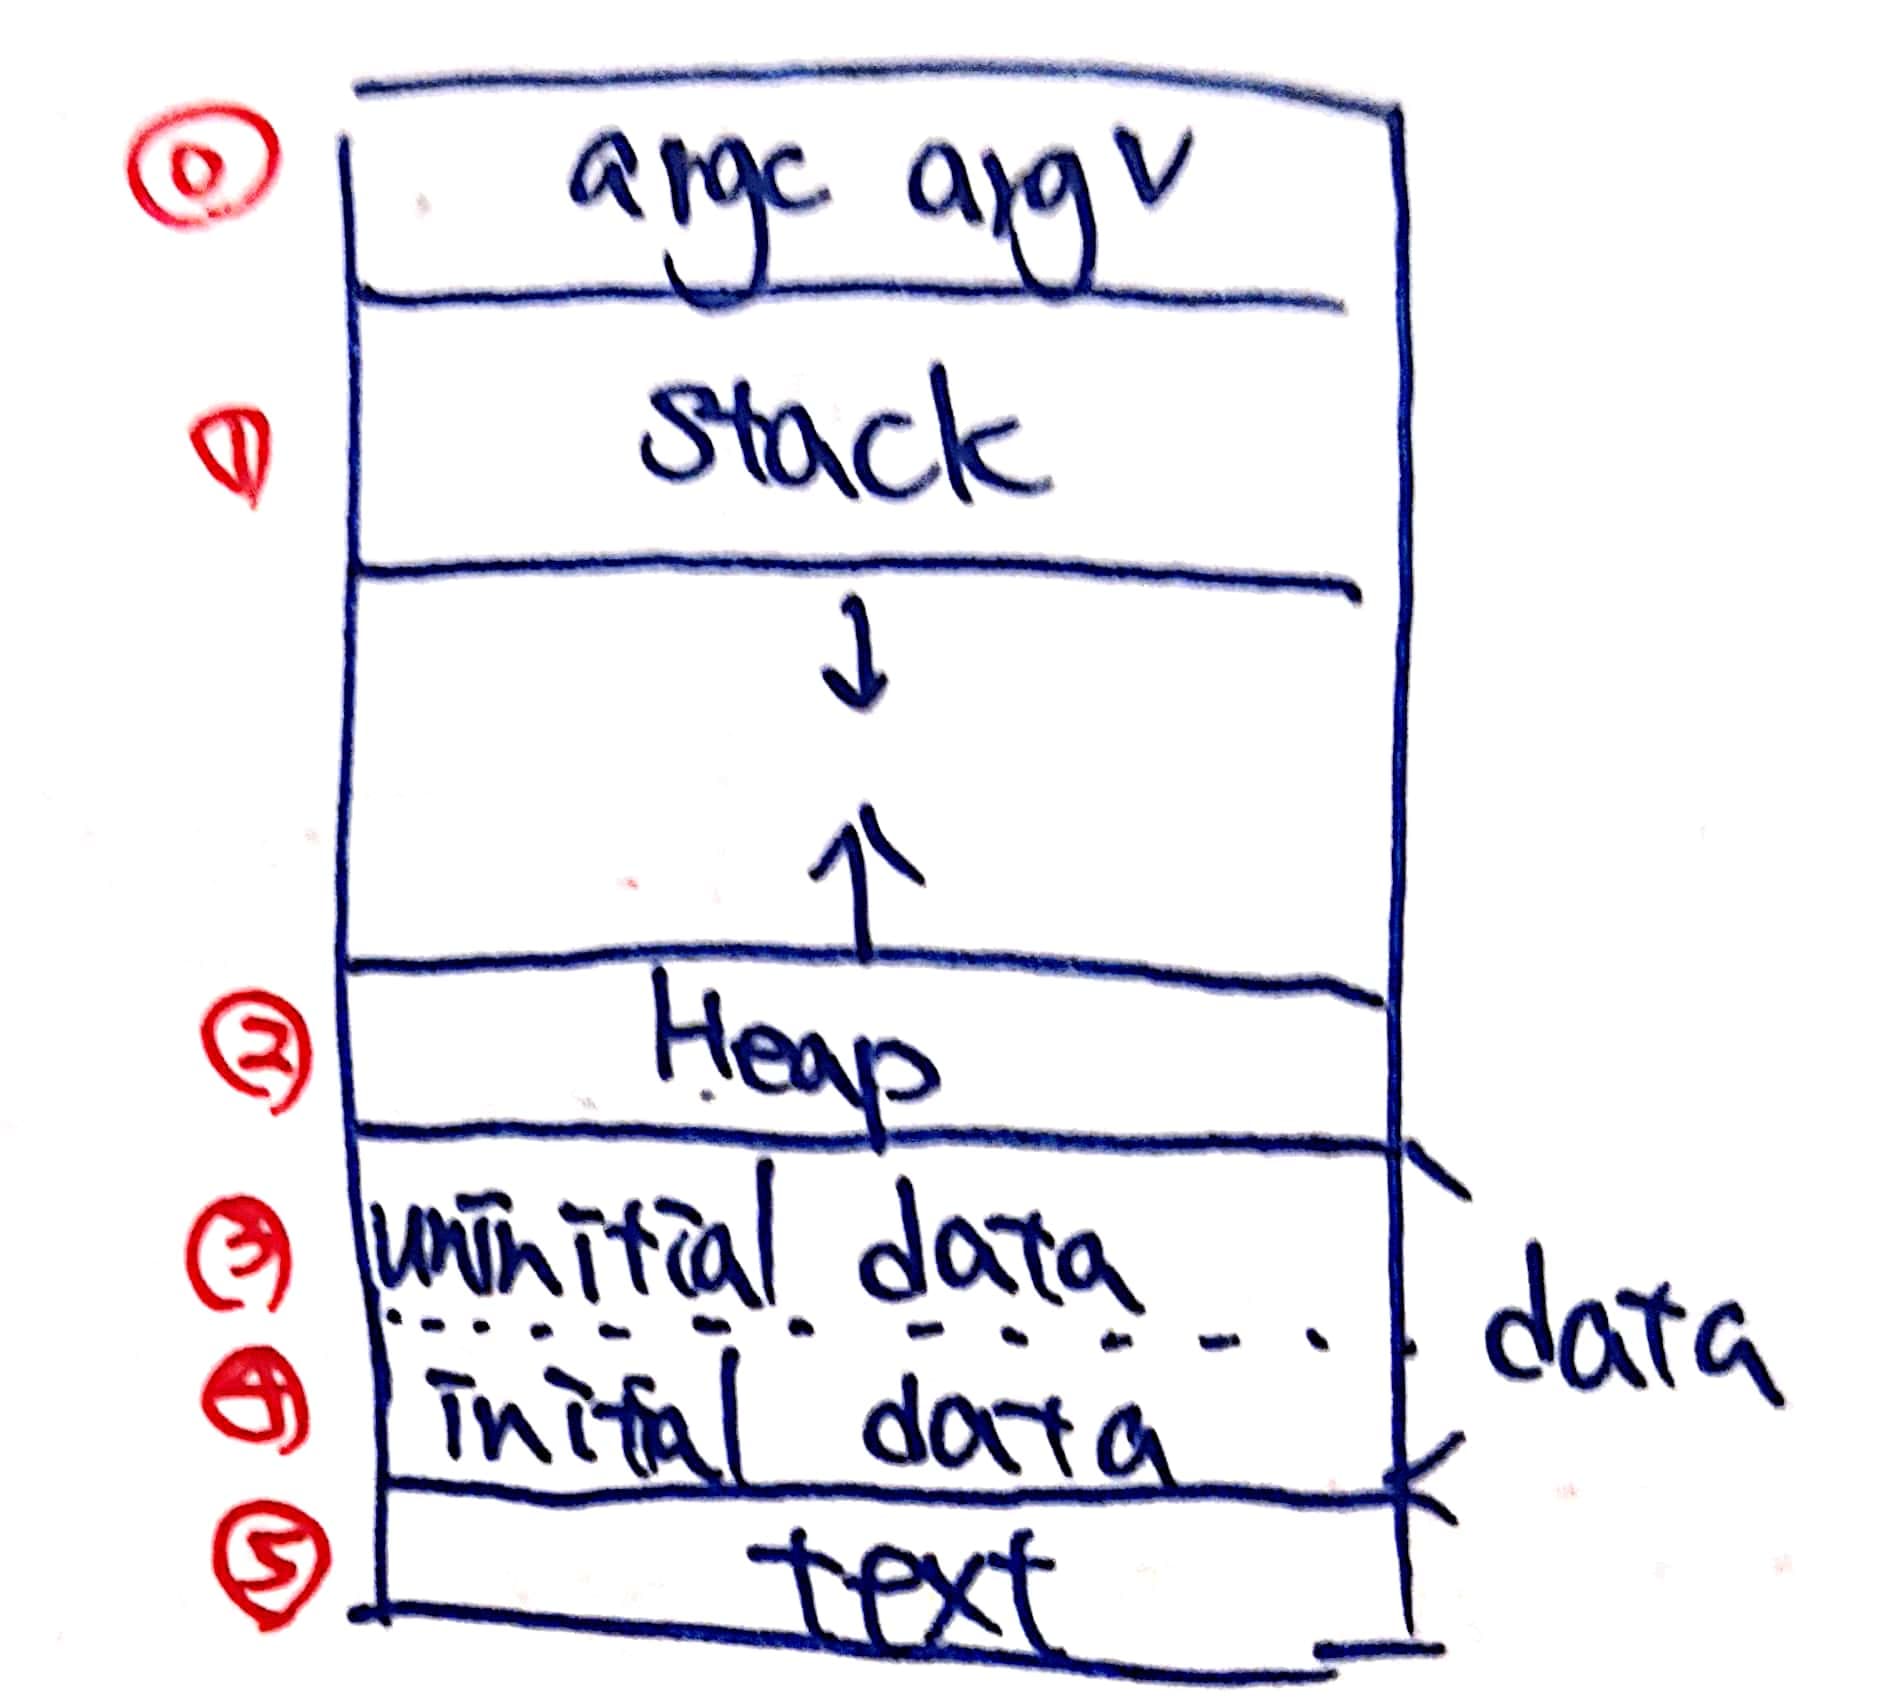 ⓪ argc argv
① stack
↓
↑
② Heap
③ uninitial data
data
④ initial data
⑤ text